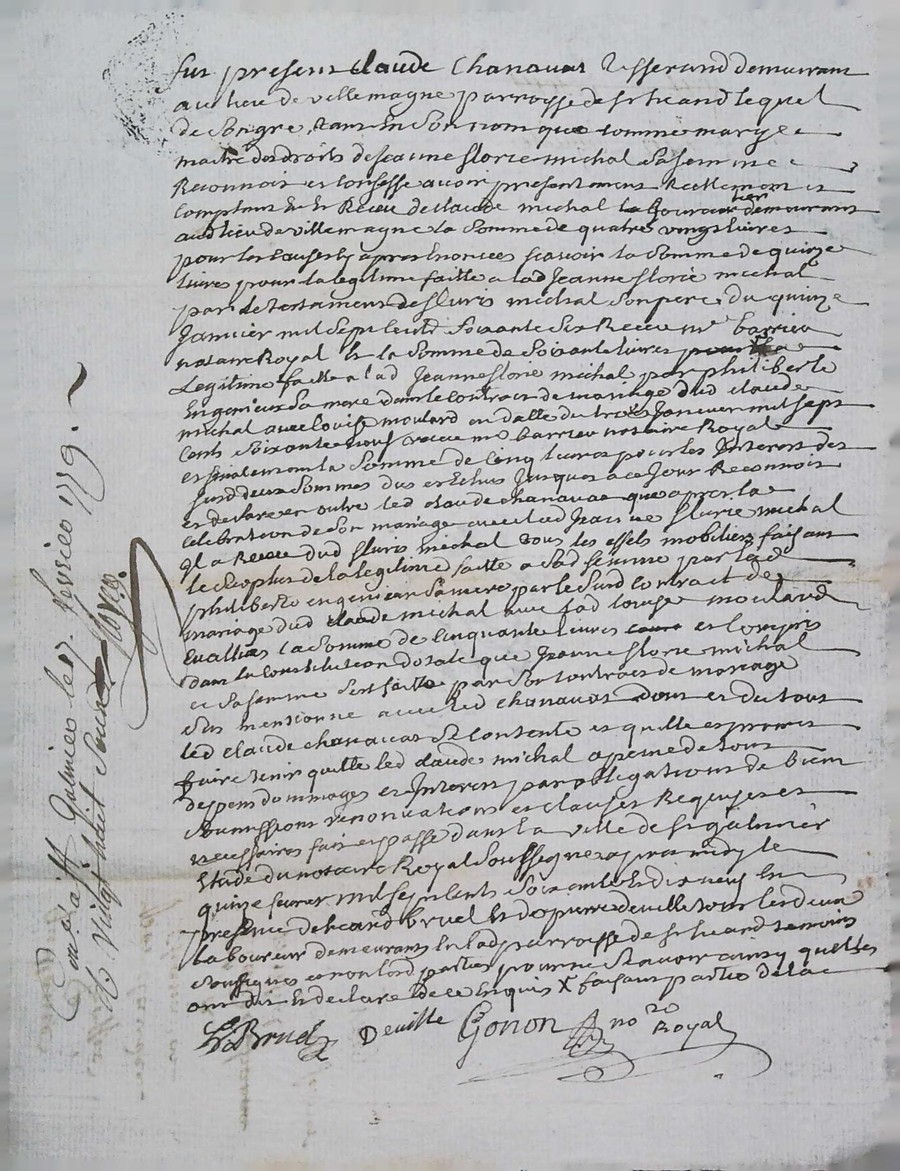 fut present Claude Chanavat tisserand demeurant
au lieu de villemagne parroysse de st heand lequel
de son gre tant en son nom que comme marye
maitre des droits de Jeanne florie michal sa femme
Reconnoit et confesse avoir presentement Reellement et
comptant Ete Receu de claude michal laboureur demeurant
aud lieu de villemagne la somme de quatre vingt livres
pour les causes cy apres enoncees scavoir la somme de quinze
livres pour la legitime faitte a lad Jeanne florie michal
par le testament de fluris michal son pere du quinze
Janvier mil sept cent soixante six Receu me barrieu
notaire Royal et la somme de soixante livres
Legitime faitte a lad Jeanne florie michal par philiberte
Engenieux sa mere dans le contrat de mariage dud claude
michal avec louise moulard en datte du Janvier mil sept
cent soixante neuf receu me barrieu notaire Royal
et finalement la somme de cinq livres pour les Interets des
susd deux sommes dus et echus Jusques a ce Jour Reconnoit
et declare en outre led claude chanavat que apres la
celebration de son mariage avec lad Jeanne flurie michal
Il a Receu dud fluris michal tous les effets mobiliers faisant
le surplus de la legitime faitte a sad femme par lad
philiberte engenieux sa mere par le susd contrat de
mariage dud claude michal avec lad louise moulard
Evalues la somme de cinquante livres et compris
dans la constitution dotale que Jeanne florie michal
sa femme s'est faitte par son contrat de mariage
mentionne avec led chanavat dont et du tout
led claude chanavat se contente et quitte et promet
faire tenir quitte led claude michal a peine de tous
depens dommages et Interets par obligations de bien
soumissions renonciations et clauses Requises et
necessaires fait et passe dans la ville de st galmier
Etude du notaire Royal soussigne apres midy le
quinze fevrier mil sept cents soixante et dix neuf En
presence de heand bruel et de pierre deville tous les deux
laboureur demeurants En lad parroisse de st heand temoins
soussignes et non lesd parties pour ne scavoir ainsy quelles
ont dit et declare de ce enquis X faisant partie de la
Bruel Deville Gonon no re Royal
Con.e a st Galmier le 17 fevrier 1779.